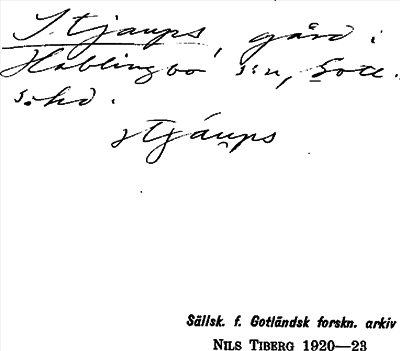 Stjaups, gård i
Hablingbo s:n, Gotl.
s:hd.
stjáu̯ps
Sällsk. f. Gotländsk forskn. arkiv
NILS TIBERG 1920—23